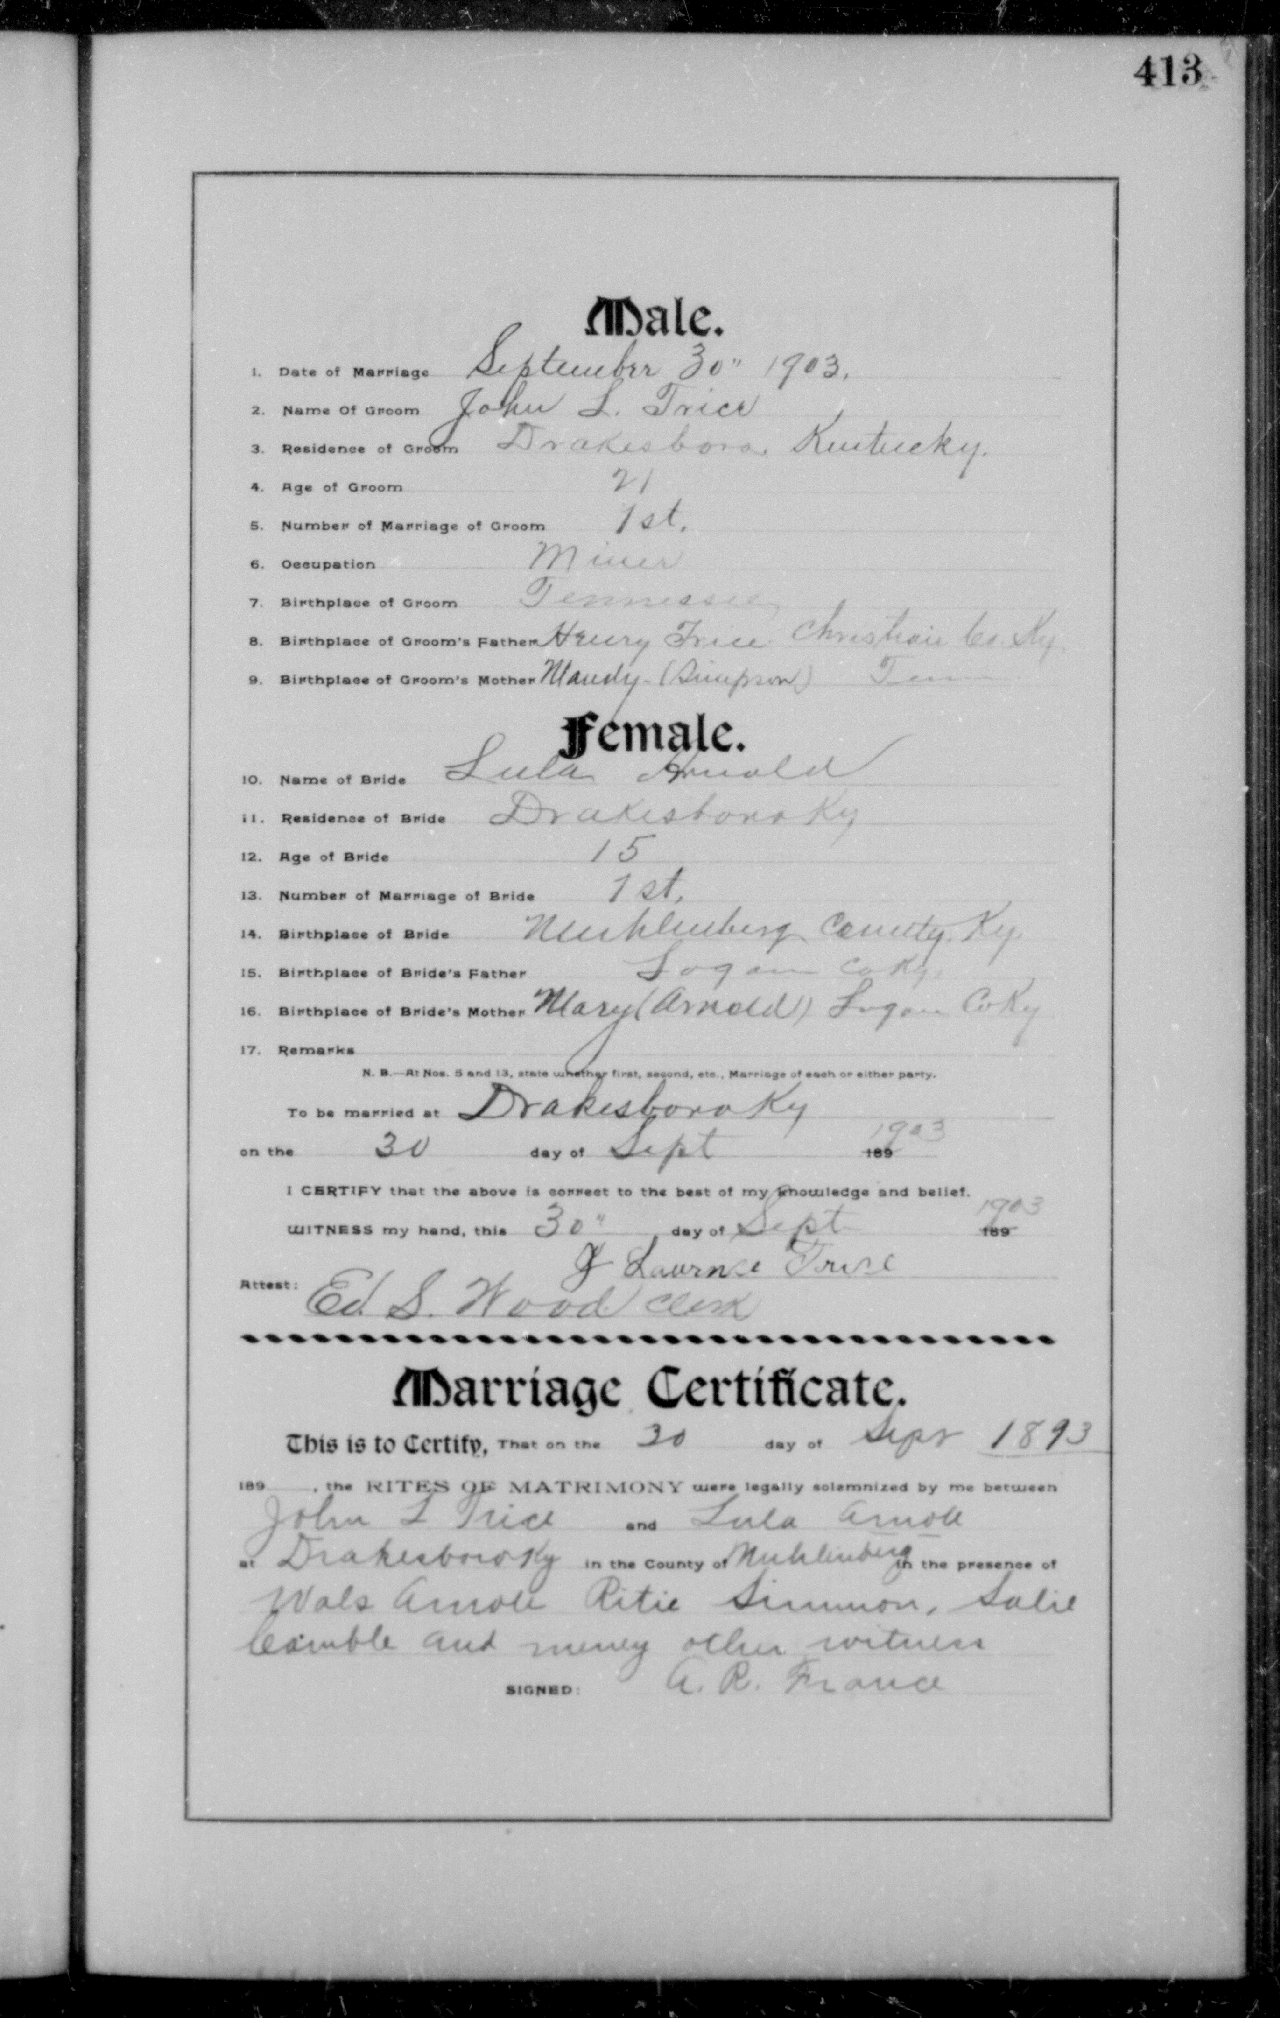 413
Male.
1. Date of Marriage September 30" 1903.
2. Name Of Groom John L. Trice
3. Residence of Groom Drakesboro, Kentucky.
4. Age of Groom 21
5. Number of Marriage of Groom 1st.
6. Occupation Miner
7. Birthplace of Groom Tennessee
8. Birthplace of Groom's Father Henry Trice Christian Co. Ky.
9. Birthplace of Groom's Mother Mandy (Simpson) Tenn
Female.
10. Name of Bride Lula Arnold
11. Residence of Bride Drakesboro Ky
12. Age of Bride 15
13. Number of Marriage of Bride 1st.
14. Birthplace of Bride Muhlenberg County Ky.
15. Birthplace of Bride's Father Logan Co Ky.
16. Birthplace of Bride's Mother Mary (Arnold) Logan Co Ky
17. Remarks
N. B.—At Nos. 5 and 13, state whether first, second, etc., Marriage of each or either party.
To be married at Drakesboro Ky
on the 30 day of Sept 189 1903
I CERTIFY that the above is correct to the best of my knowledge and belief.
WITNESS my hand, this 30" day of Sept 189 1903
J Lawrnce Trice
Attest: Ed. S. Wood Clerk
Marriage Certificate.
This is to Certify, That on the 30 day of Sept 1893
189 , the RITES OF MATRIMONY were legally solemnized by me between
John L Trice and Lula Arnole
at Drakesboro Ky in the County of Muhlinberg in the presence of
Wals Arnole Ritie Simmon, Salie
Camble and meney other witness
SIGNED: A. R. France